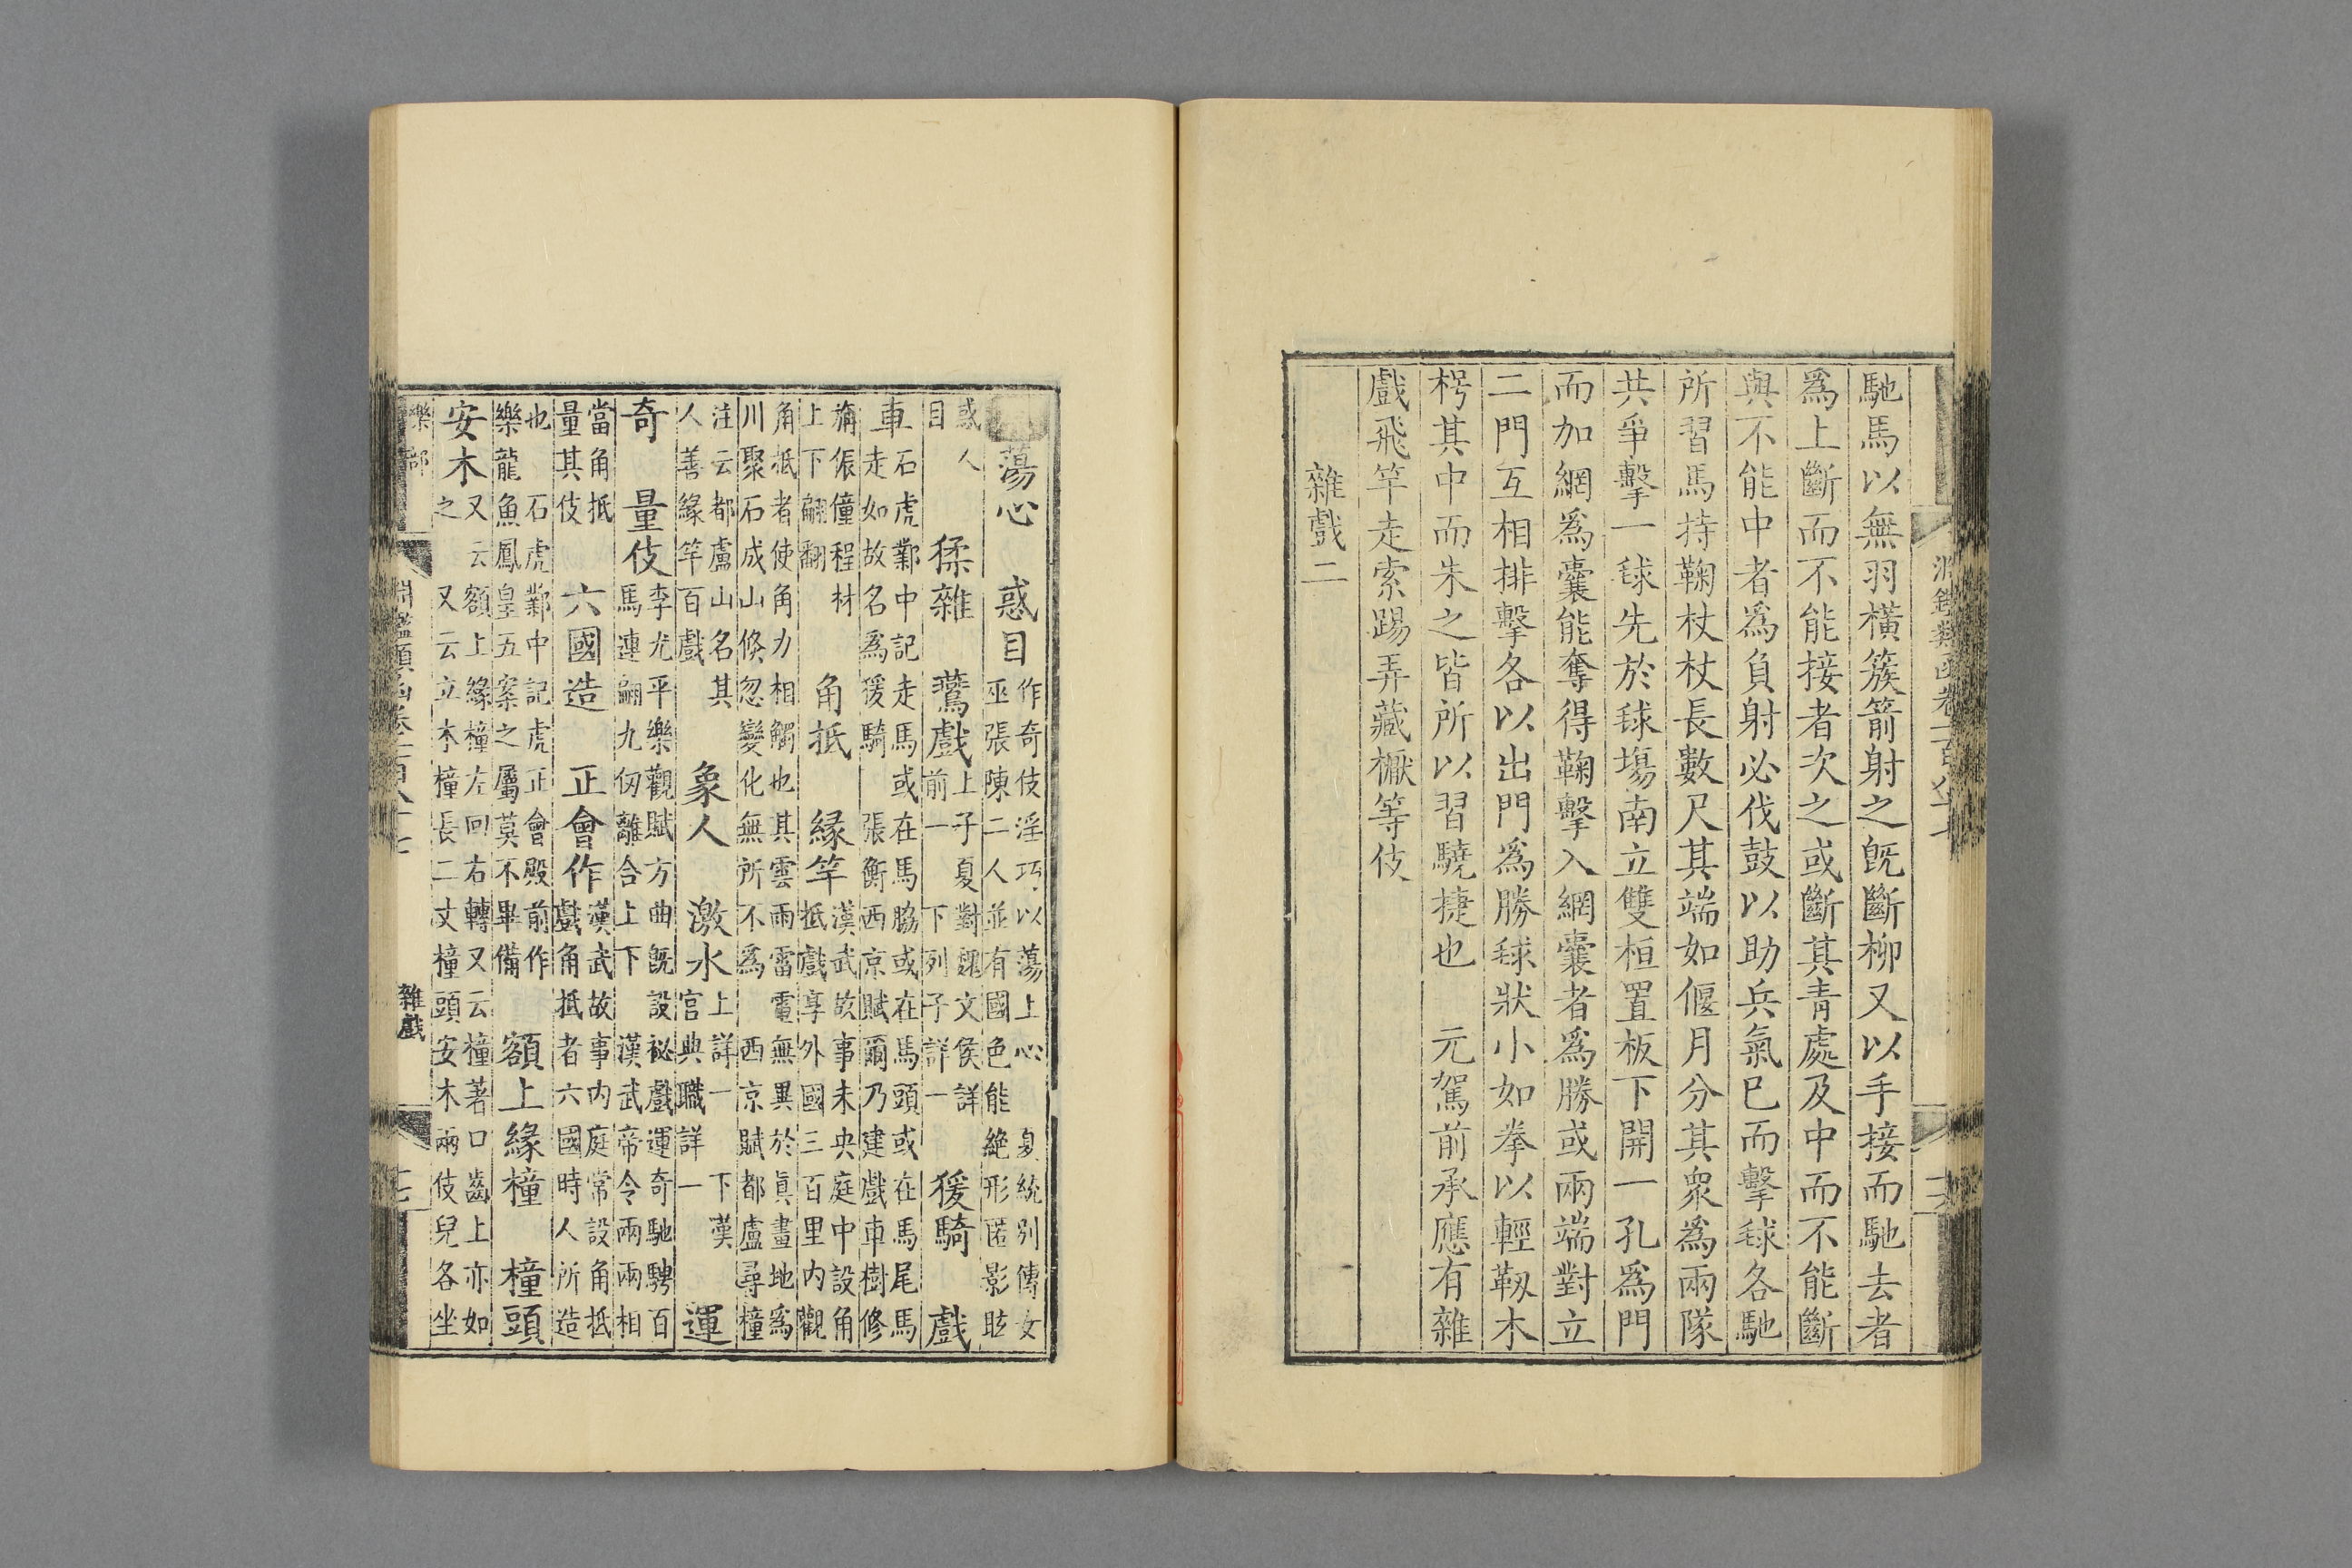 淵鑑類函卷一百八十七　十六
馳馬以無羽橫簇箭射之旣斷柳又以手接而馳去者
爲上斷而不能接者次之或斷其靑處及中而不能斷
與不能中者爲負射必伐鼓以助兵氣巳而擊毬各馳
所習馬持鞠杖杖長數尺其端如偃月分其衆爲兩隊
共爭擊一毬先於毬塲南立雙桓置板下開一孔爲門
而加網爲囊能奪得鞠擊入網囊者爲勝或兩端對立
二門互相排擊各以出門爲勝毬狀小如拳以輕靱木
枵其中而朱之皆所以習驍捷也　元駕前承應有雜
戲飛竿走索踢弄藏橛等伎
雜戲二
蕩心　惑目
作奇伎淫巧以蕩上心　夏統別傳女
巫張陳二人並有國色能絶形匿影眩
惑人
目
猱雜　鷔戲
上子夏對魏文侯詳
前一　下列子詳一
猨騎　戲
車
石虎鄴中記走馬或在馬脇或在馬頭或在馬尾馬
走如故名爲猨騎　張衡西京賦爾乃建戲車樹修
旃侲僮程材
上下翩翻
角抵　緣竿
漢武故事未央庭中設角
抵戲享外國三百里内觀
角抵者使角力相觸也其雲雨雷電無異於眞畫地爲
川聚石成山倐忽變化無所不爲　西京賦都盧尋橦
注云都盧山名其
人善緣竿百戲
象人　激水
上詳一　下漢
官典職詳一
運
奇　量伎
李尤平樂觀賦方曲旣設祕戲運奇馳騁百
馬連翩九仞離合上下　漢武帝令兩兩相
當角抵
量其伎
六國造　正會作
漢武故事内庭常設角抵
戲角抵者六國時人所造
也　石虎鄴中記虎正會殿前作
樂龍魚鳳皇五案之屬莫不畢備
額上緣橦　橦頭
安木
又云額上緣橦左回右轉又云橦著口齒上亦如
之　又云立木橦長二丈橦頭安木兩伎兒各坐
樂部　淵鑑類函卷一百八十七　雜戲　十七